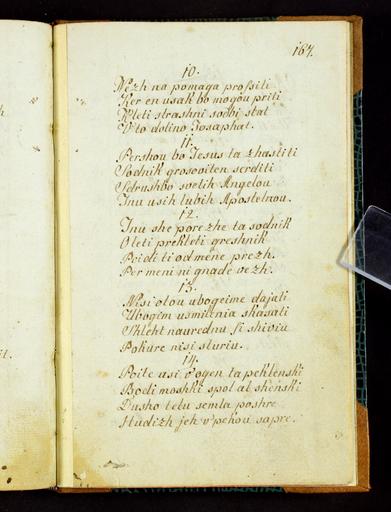 167.
10.
Nezh na pomaga profsiti
Ker en usak bo mogou priti
V leti strashni sodbi stat
V to dolino Josaphat.
11.
Pershou bo Jesus ta zhastiti
Sodnik grosoviten serditi
Sdrushbo svetih Angelou
Inu usih lubih Apostelnou.
12.
Inu she porezhe ta sodnik
O leti prekleti greshnik
Poidi ti od mene prezh.
Per meni ni gnade vezh.
13.
Nisi otou ubogeime dajati
Ubogim usmilenia skasati
Skleht naurednu si shiviu
Pokure nisi sturiu.
14.
Poite usi v'ogen ta peklenski
Bodi moshki spol al shenski
Dusho telu semla poshre
Hudizh jeh v'pekou sapre.
il.